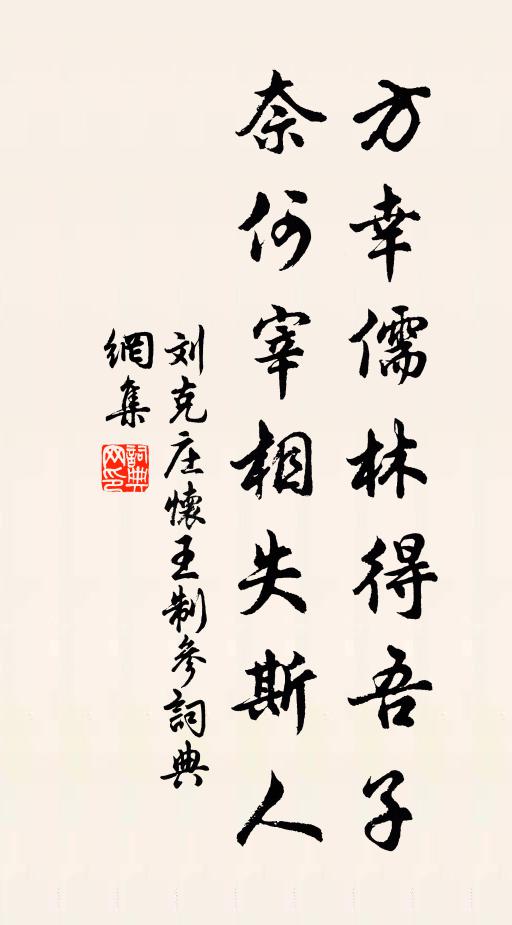 方幸儒林得吾子
奈何宰相失斯人
刘克庄懷王制參詞典
網集
詞典
网印